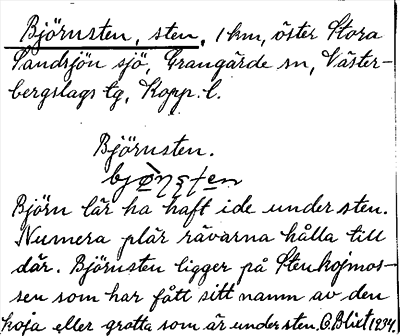 Björnsten, sten, 1 km, öster Stora
Sandsjön sjö, Grangärde sn, Väster-
bergslags tg, Kopp. l.
Björnsten.
Björn lär ha haft ide under sten.
Numera plär rävarna hålla till
där. Björnsten ligger på Stenkojmos-
sen som har fått sitt namn av den
koja eller grotta som är under sten. 1934.